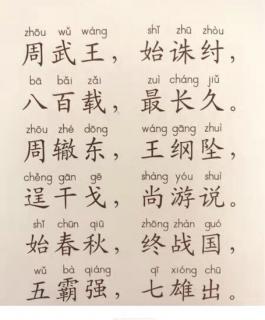 zhōu wǔ wáng shǐ zhū zhòu
周武王，始诛纣，
bā bǎi zǎi zuì cháng jiǔ
八百载，最长久。
zhōu zhé dōng wáng gāng zhuì
周辙东，王纲坠，
chěng gān gē shàng yóu shuì
逞干戈，尚游说。
shǐ chūn qiū zhōng zhàn guó
始春秋，终战国，
wǔ bà qiáng qī xióng chū
五霸强，七雄出。